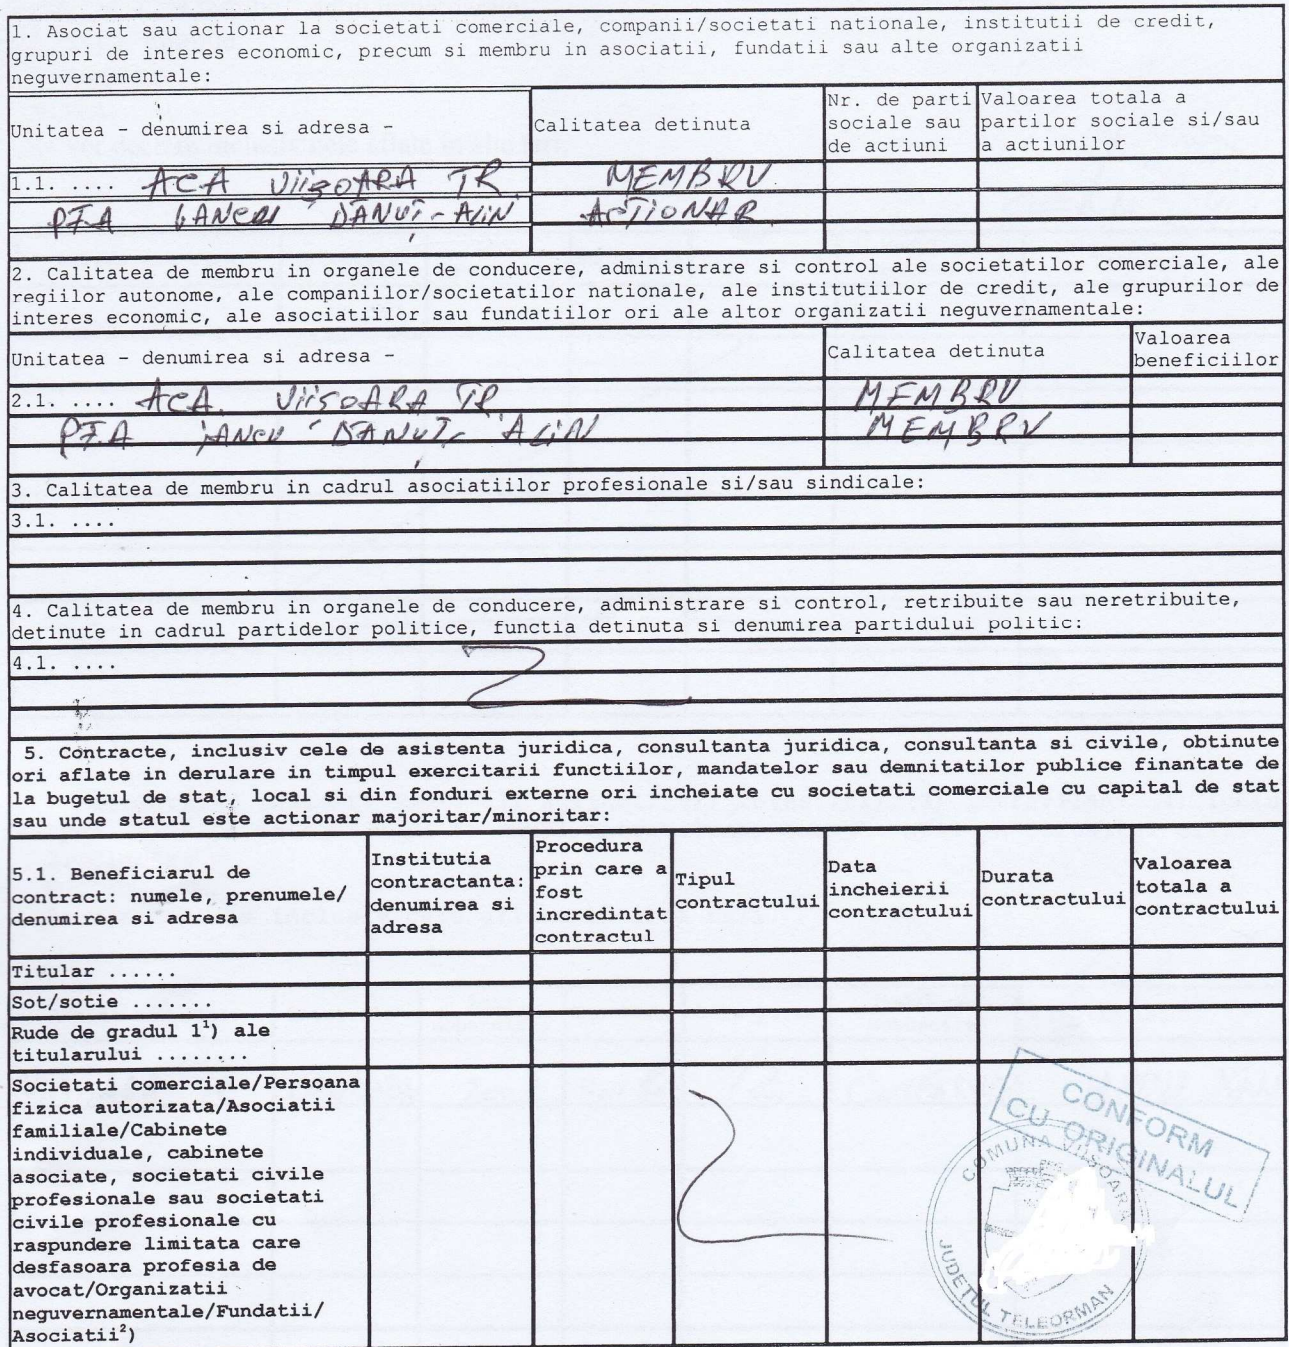 1. Asociat sau actionar la societati comerciale, companii/societati nationale, institutii de credit,
grupuri de interes economic, precum si membru in asociatii, fundatii sau alte organizatii
neguvernamentale:
Unitatea - denumirea si adresa -
Calitatea detinuta
Nr. de parti
sociale sau
de actiuni
Valoarea totala a
partilor sociale si/sau
a actiunilor
1.1. .... ACA ViişOARA TR MEMBRU
PFA DĂNUȚ-Alin ACTIONAR
2. Calitatea de membru in organele de conducere, administrare si control ale societatilor comerciale, ale
regiilor autonome, ale companiilor/societatilor nationale, ale institutiilor de credit, ale grupurilor de
interes economic, ale asociatiilor sau fundatiilor ori ale altor organizatii neguvernamentale:
Unitatea - denumirea si adresa -
Calitatea detinuta
Valoarea
beneficiilor
2.1. .... ACA ViisOARA TR MEMBRU
PFA iANCU DĂNUȚ- ALiN MEMBRU
3. Calitatea de membru in cadrul asociatiilor profesionale si/sau sindicale:
3.1. ....
4. Calitatea de membru in organele de conducere, administrare si control, retribuite sau neretribuite,
detinute in cadrul partidelor politice, functia detinuta si denumirea partidului politic:
4.1. ....
5. Contracte, inclusiv cele de asistenta juridica, consultanta juridica, consultanta si civile, obtinute
ori aflate in derulare in timpul exercitarii functiilor, mandatelor sau demnitatilor publice finantate de
la bugetul de stat, local si din fonduri externe ori incheiate cu societati comerciale cu capital de stat
sau unde statul este actionar majoritar/minoritar:
5.1. Beneficiarul de
contract: numele, prenumele/
denumirea si adresa
Institutia
contractanta:
denumirea si
adresa
Procedura
prin care a
fost
incredintat
contractul
Tipul
contractului
Data
incheierii
contractului
Durata
contractului
Valoarea
totala a
contractului
Titular ......
Sot/sotie .......
Rude de gradul 1¹) ale
titularului ........
Societati comerciale/Persoana
fizica autorizata/Asociatii
familiale/Cabinete
individuale, cabinete
asociate, societati civile
profesionale sau societati
civile profesionale cu
raspundere limitata care
desfasoara profesia de
avocat/Organizatii
neguvernamentale/Fundatii/
Asociatii²)
CONFORM
CU ORIGINALUL
COMUNA VIISOARA
JUDETUL TELEORMAN